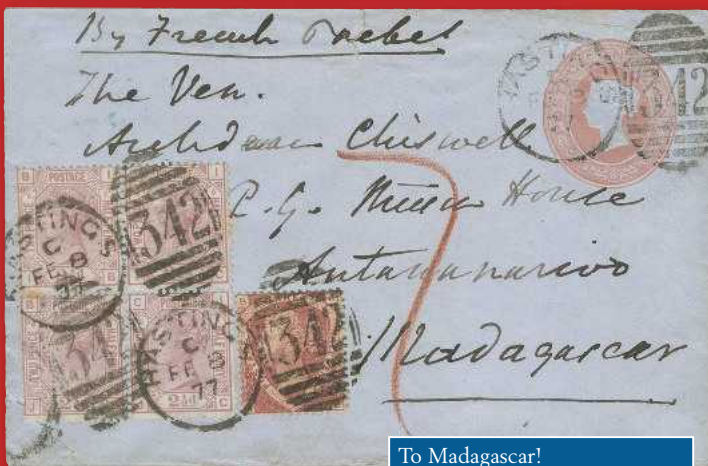 By French Packet
The Ven.
Archdeacon Chiswell
P. G. Mission House
Antananarivo
Madagascar
HASTINGS
C
FE 8
77
342
HASTINGS
C
FE 8
77
342
342
342
POSTAGE
2½d
To Madagascar!